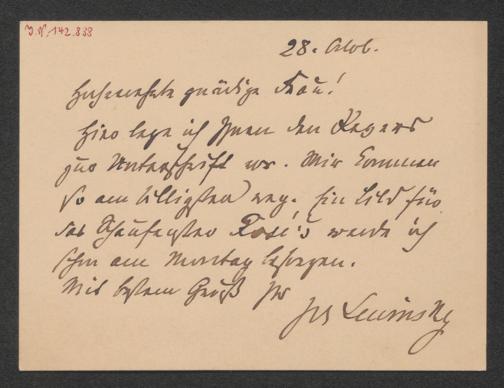 I.N. 142.838
28. Okt.
Hochverehrte gnädige Frau!
Hier lege ich Ihnen den Revers
zur Unterschrift vor. Wir kommen
so am billigsten weg. Ein Bild für
das Schaufenster Rosé's werde ich
schon am Montag besorgen.
Mit bestem Gruß Ihr
Jos Lewinsky